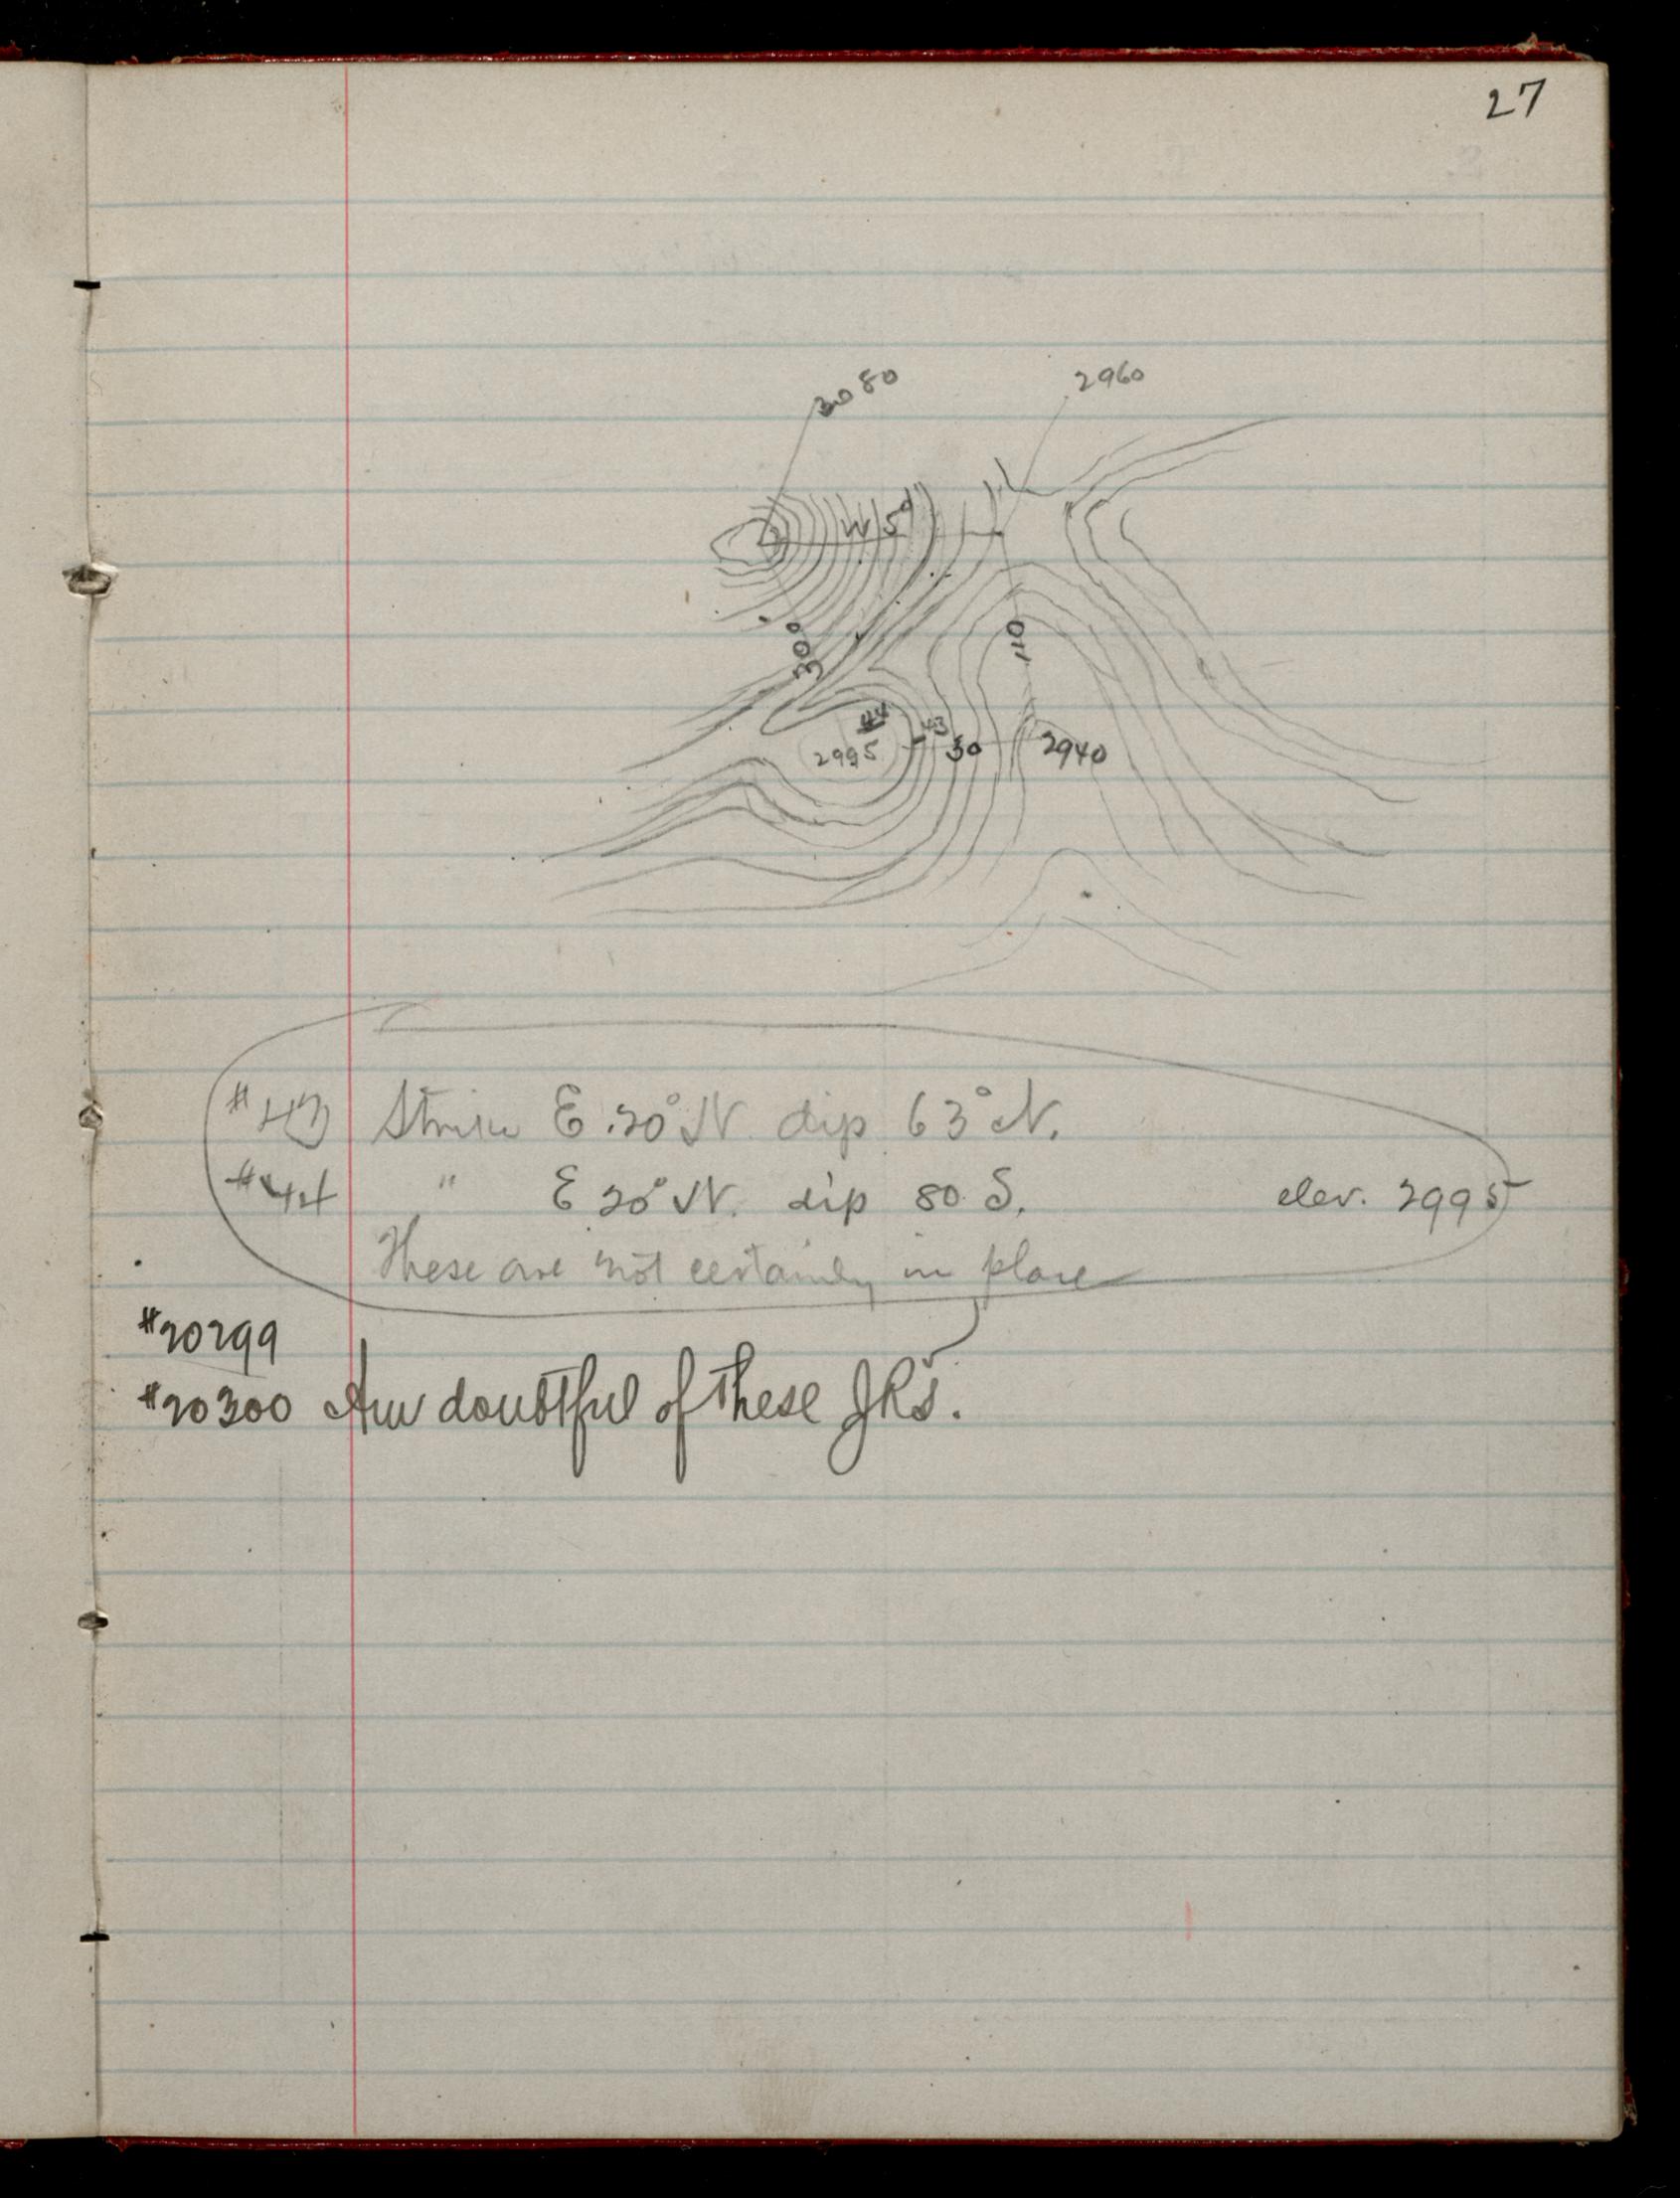 27
3080
2960
W 5°
300
110
44
43
2995
30
2940
#43 Strike E.20°N. dip 63°N.
#44 " E 20°N. dip 80 S. elev. 2995
These are not certainly in place
#20299
#20300 Am doubtful of these JRS.